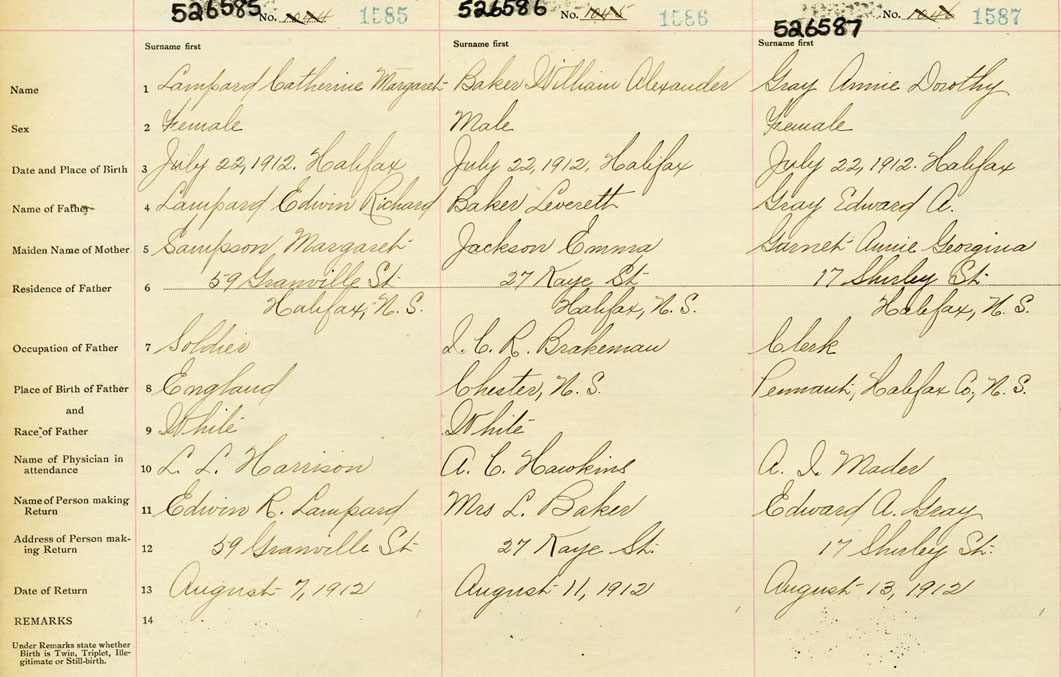 526585 No. 1044 1585 526586 No. 1045 1586 526587 No. 1046 1587
Surname first Surname first Surname first
Name 1 Lampard Catherine Margaret Baker William Alexander Gray Annie Dorothy
Sex 2 Female Male Female
Date and Place of Birth 3 July 22, 1912. Halifax July 22, 1912, Halifax July 22, 1912. Halifax
Name of Father 4 Lampard Edwin Richard Baker Leverett Gray Edward A.
Maiden Name of Mother 5 Sampson Margaret Jackson Emma Garnet Annie Georgina
59 Granville St 27 Kaye St 17 Shirley St
Residence of Father 6
Halifax, N. S. Halifax, N. S. Halifax, N. S.
Occupation of Father 7 Soldier I. C. R. Brakeman Clerk
Place of Birth of Father 8 England Chester, N. S. Pennant, Halifax Co, N. S.
and
Race of Father 9 White White
Name of Physician in
attendance 10 L. L. Harrison A. C. Hawkins A. I. Mader
Name of Person making
Return 11 Edwin R. Lampard Mrs L. Baker Edward A. Gray
Address of Person mak-
ing Return 12 59 Granville St 27 Kaye St. 17 Shirley St.
Date of Return 13 August 7, 1912 August 11, 1912 August 13, 1912
REMARKS 14
Under Remarks state whether
Birth is Twin, Triplet, Ille-
gitimate or Still-birth.